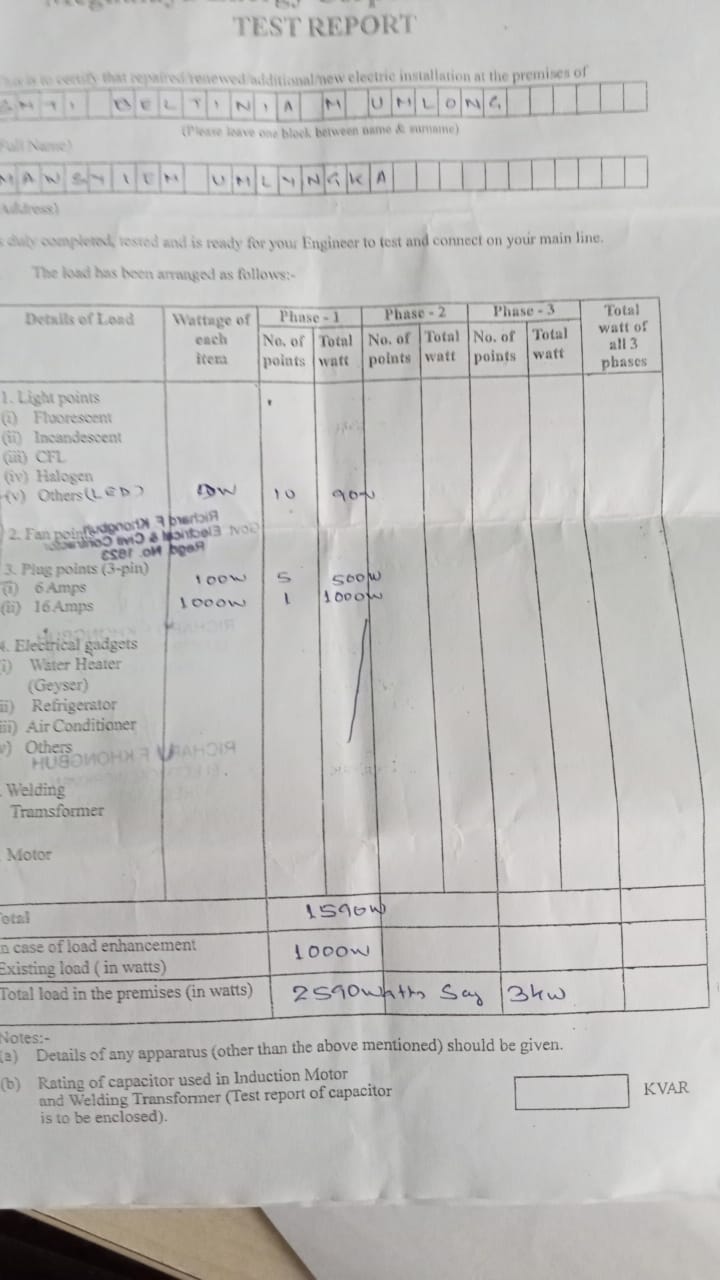 TEST REPORT
is to certify that repaired/renewed/additional/new electric installation at the premises of
SMTI BELTINIA M UMLONG
(Please leave one block between name & surname)
Full Name)
MAWSYIEM UMLYNGKA
Address)
duly completed, tested and is ready for your Engineer to test and connect on your main line.
The load has been arranged as follows:-
Details of Load Wattage of each item Phase - 1 Phase - 2 Phase - 3 Total watt of all 3 phases
No. of points Total watt No. of points Total watt No. of points Total watt
1. Light points
(i) Fluorescent
(ii) Incandescent
(iii) CFL
(iv) Halogen
(v) Others (LED) 10 90W
2. Fan points
Richard F Khongbuh
Govt Electrical & Civil Contractor
Regd No. 1823
3. Plug points (3-pin)
(i) 6 Amps 100W 5 500W
(ii) 16 Amps 1000W 1 1000W
4. Electrical gadgets
i) Water Heater
(Geyser)
ii) Refrigerator
iii) Air Conditioner
v) Others
RICHARD F KHONGBUH
Welding
Tramsformer
Motor
otal 1590W
n case of load enhancement
Existing load ( in watts) 1000W
Total load in the premises (in watts) 2590watts Say 3kw
Notes:-
(a) Details of any apparatus (other than the above mentioned) should be given.
(b) Rating of capacitor used in Induction Motor
and Welding Transformer (Test report of capacitor KVAR
is to be enclosed).